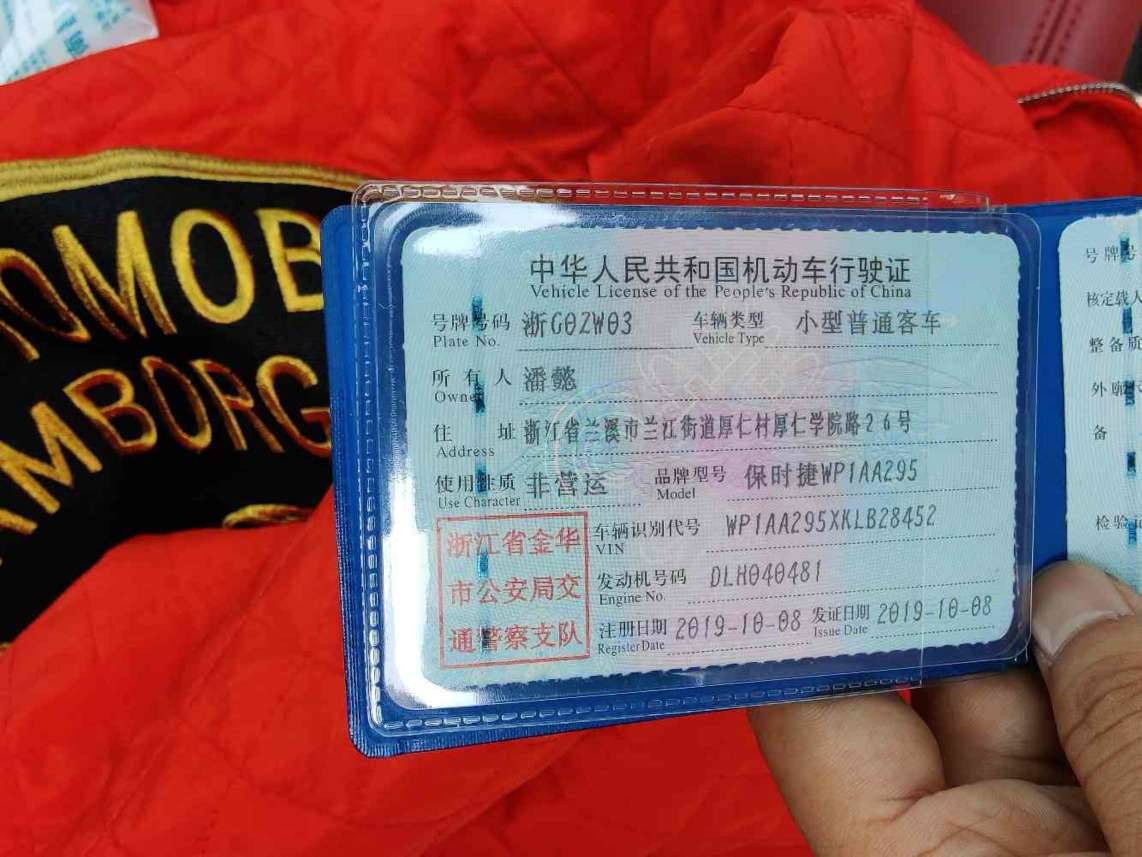 OMOB
AMBORG
中华人民共和国机动车行驶证
Vehicle License of the People's Republic of China
号牌号码 浙G0ZW03 车辆类型 小型普通客车
Plate No. Vehicle Type
所有人 潘懿
Owner
住址 浙江省兰溪市兰江街道厚仁村厚仁学院路26号
Address
使用性质 非营运 品牌型号 保时捷WP1AA295
Use Character Model
浙江省金华
市公安局交
通警察支队
车辆识别代号 WP1AA295XKLB28452
VIN
发动机号码 DLH040481
Engine No.
注册日期 2019-10-08 发证日期 2019-10-08
Register Date Issue Date
号牌号
核定载人
整备质
外廓
备
检验